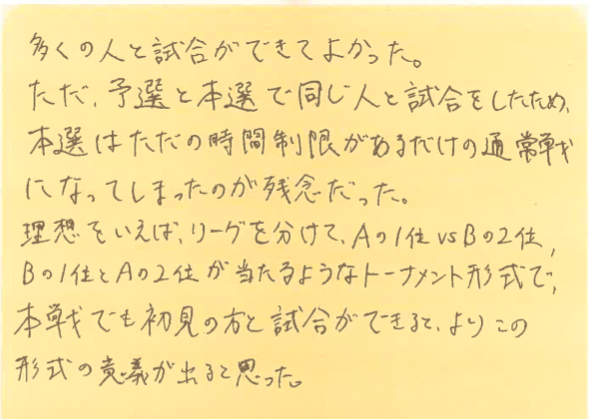 多くの人と試合ができてよかった。
ただ、予選と本選で同じ人と試合をしたため、
本選はただの時間制限があるだけの通常戦
になってしまったのが残念だった。
理想をいえば、リーグを分けて、Aの1位vsBの2位、
Bの1位とAの2位が当たるようなトーナメント形式で、
本戦でも初見の方と試合ができると、よりこの
形式の意義が出ると思った。